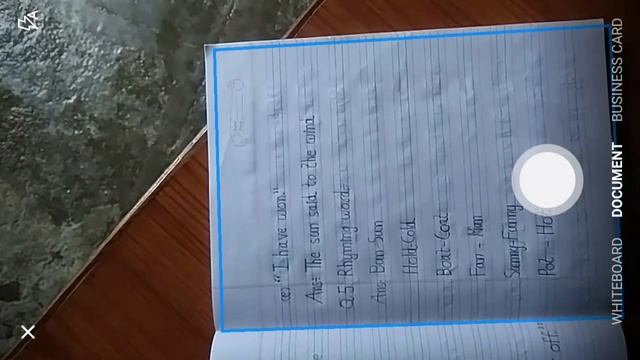 (e) "I have won."
Ans= The sun said to the wind.
Q.5. Rhyming words
Ans= Bun-Sun
Hold-Cold
Boat-Coat
Fan - Man
Sunny-Funny
Pot - Hot
off."
WHITEBOARD DOCUMENT BUSINESS CARD